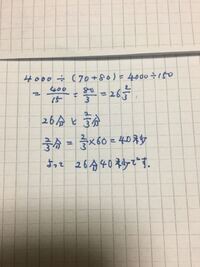 4000÷(70+80)=4000÷150
=400/15=80/3=26 2/3
26分と2/3分
2/3分=2/3×60=40秒
よって 26分40秒です.